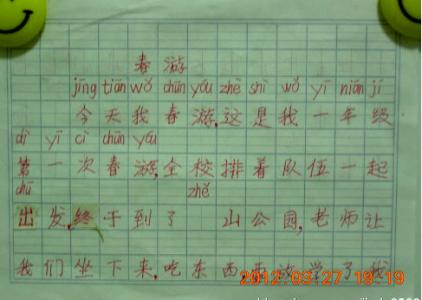 春游
jīng tiān wǒ chūn yóu zhè shì wǒ yī nián jí
今天我春游,这是我一年级
dì yī cì chūn yóu
第一次春游,全校排着队伍一起
chū zhě
出发,终于到了 山公园,老师让
我们坐下来,吃东西,
2012-03-27 19:19